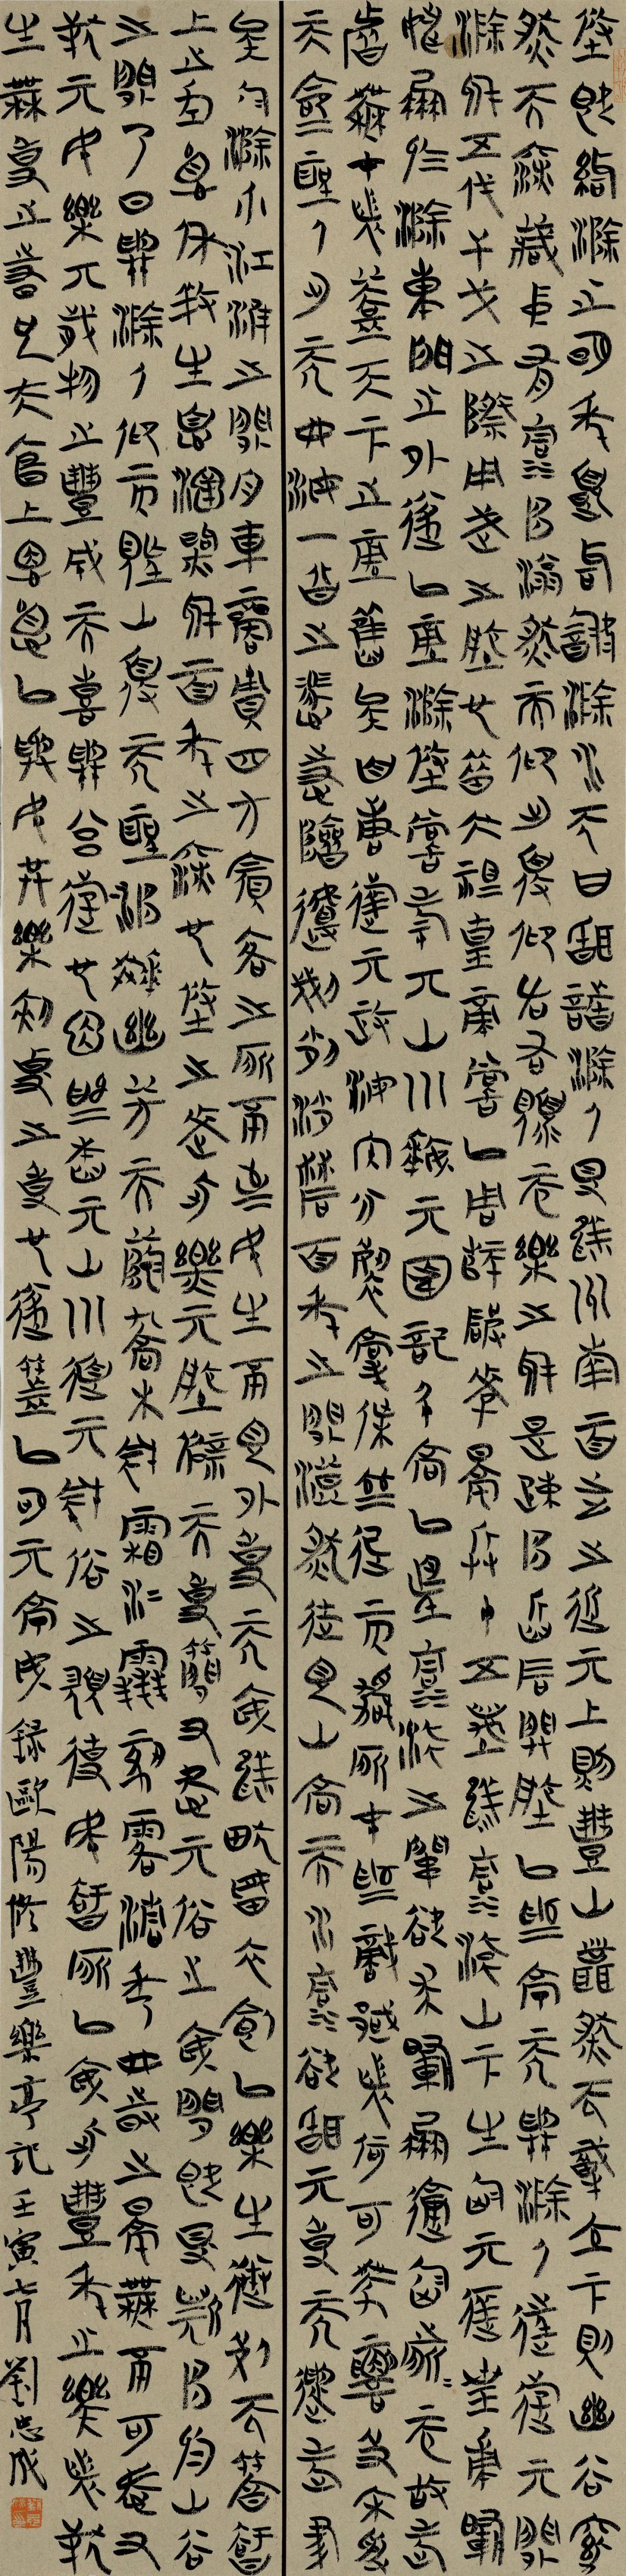 修既治滁之明年夏始飲滁水而甘問諸滁人得於州南百步之近其上則豐山聳然而特立下則幽谷窈
然而深藏中有清泉滃然而仰出俯仰左右顧而樂之於是疏泉鑿石闢地以為亭而與滁人往遊其間
滁於五代干戈之際用武之地也昔太祖皇帝嘗以周師破李景兵十五萬於清流山下生擒其將皇甫暉
姚鳳於滁東門之外遂以平滁修嘗考其山川按其圖記升高以望清流之關欲求暉鳳就擒之所而故老
皆無在者蓋天下之平久矣自唐失其政海內分裂豪傑並起而爭所在為敵國者何可勝數及宋受
天命聖人出而四海一嚮之憑恃險阻剗削消磨百年之間漠然徒見山高而水清欲問其事而遺老盡
矣今滁介江淮之間舟車商賈四方賓客之所不至民生不見外事而安於畎畝衣食以樂生送死而孰知
上之功德休養生息涵煦於百年之深也修之來此樂其地僻而事簡又愛其俗之安閒既得斯泉於山谷
之間乃日與滁人仰而望山俯而聽泉掇幽芳而蔭喬木風霜冰雪刻露清秀四時之景無不可愛又
幸其民樂其歲物之豐成而喜與予遊也因為本其山川道其風俗之美使民知所以安此豐年之樂者幸
生無事之時也夫宣上恩德以與民共樂刺史之事也遂書以名其亭焉錄歐陽修豐樂亭記壬寅七月劉忠成